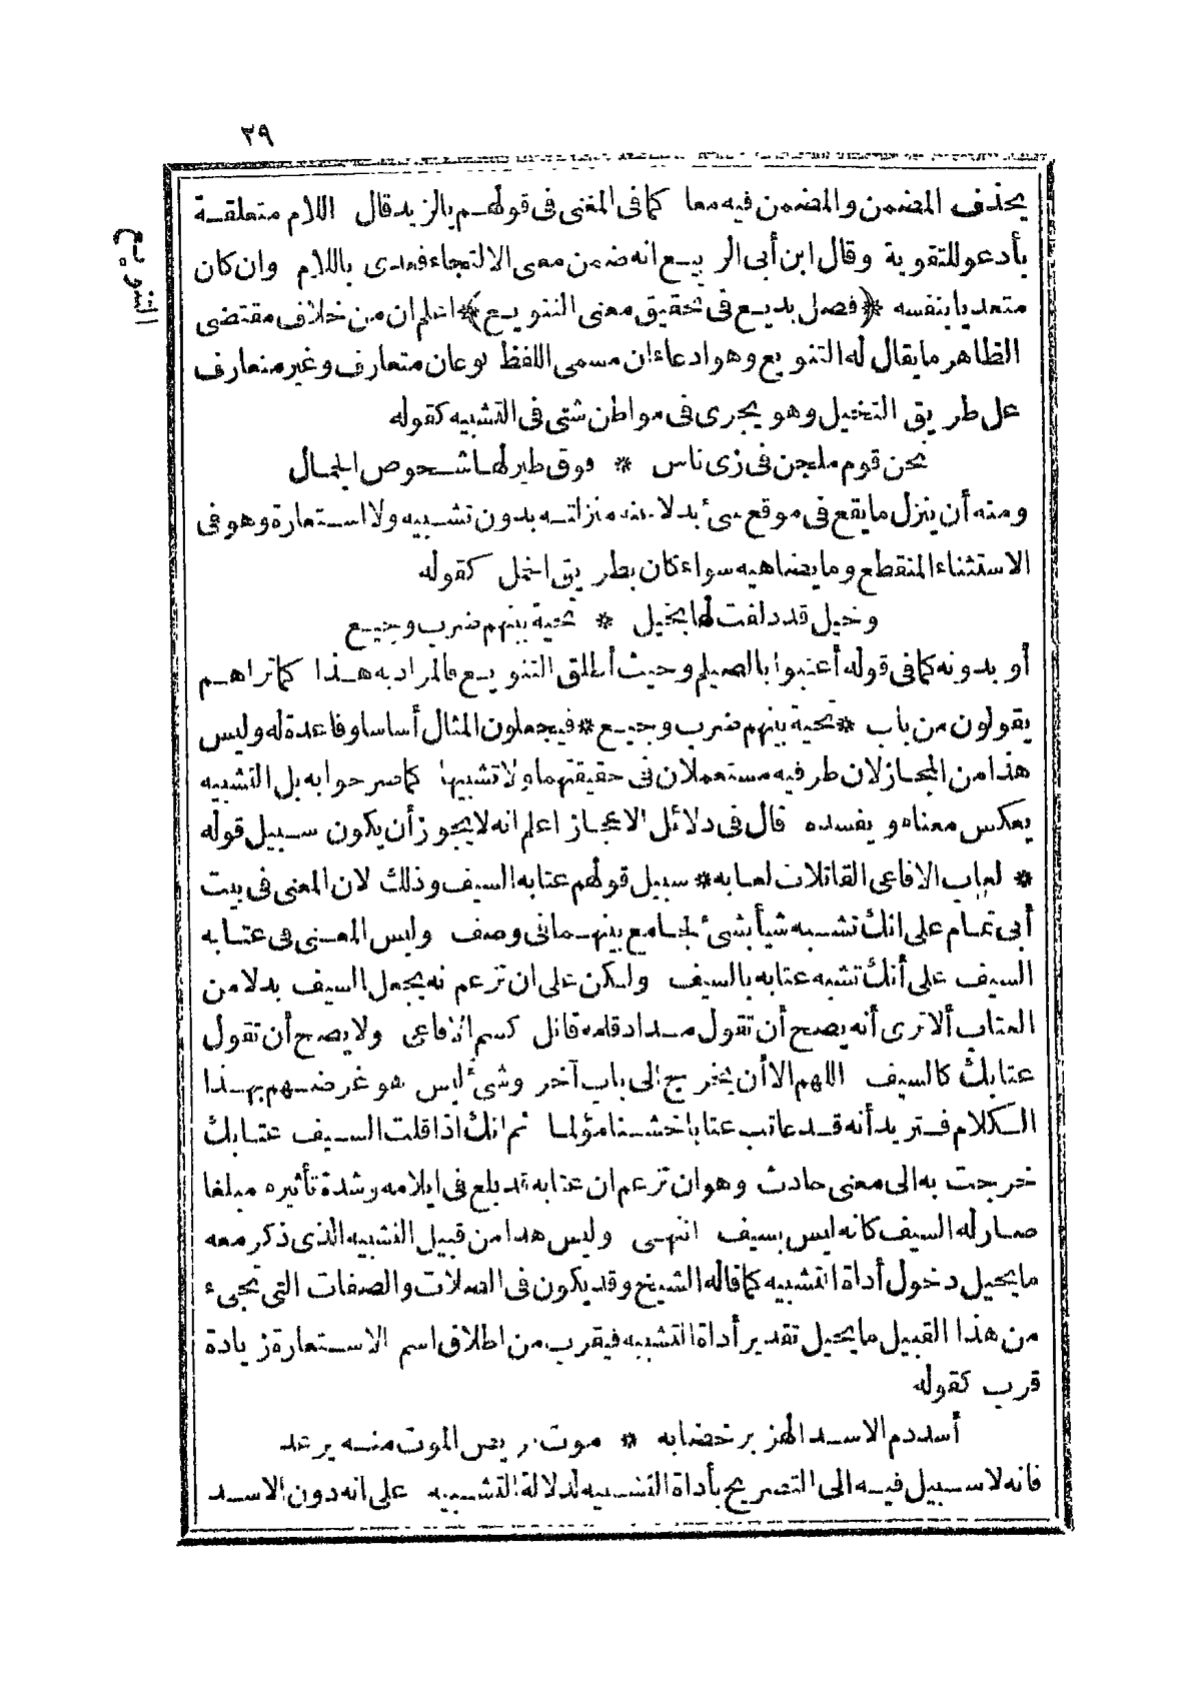 ٢٩
التنويع
يحذف المضمن والمضمن فيه معا كما فى المغنى فى قولهم يالزيد قال اللام متعلقة
بأدعو للتقوية وقال ابن أبى الربيع انه ضمن معنى الالتجاء فعدى باللام وان كان
متعديا بنفسه ﴿فصل بديع فى تحقيق معنى التنويع﴾ اعلم ان من خلاف مقتضى
الظاهر ما يقال له التنويع وهو ادعاء ان مسمى اللفظ نوعان متعارف وغير متعارف
على طريق التخييل وهو يجرى فى مواطن شتى فى التشبيه كقوله
نحن قوم ملجن فى زى ناس * فوق طير لها شخوص الجمال
ومنه أن ينزل ما يقع فى موقع شئ بدلا عنه منزلته بدون تشبيه ولا استعارة وهو فى
الاستثناء المنقطع وما يضاهيه سواء كان بطريق الحمل كقوله
وخيل قد دلفت لها بخيل * تحية بينهم ضرب وجيع
أو بدونه كما فى قوله أعتبوا بالصيلم وحيث أطلق التنويع فالمراد به هذا كما تراهم
يقولون من باب * تحية بينهم ضرب وجيع * فيجعلون المثال أساسا وقاعدة له وليس
هذا من المجاز لان طرفيه مستعملان فى حقيقتهما ولا تشبيها كما صرحوا به بل التشبيه
يعكس معناه ويفسده قال فى دلائل الاعجاز اعلم انه لا يجوز أن يكون سبيل قوله
* لعاب الافاعى القاتلات لعابه * سبيل قولهم عتابه السيف وذلك لان المعنى فى بيت
أبى تمام على انك تشبه شيأ بشئ لجامع بينهما فى وصف وليس المعنى فى عتابه
السيف على أنك تشبه عتابه بالسيف ولكن على ان تزعم نه يجعل السيف بدلا من
العتاب ألا ترى أنه يصح أن تقول مداد قلمه قاتل كسم الافاعى ولا يصح أن تقول
عتابك كالسيف اللهم الا أن يخرج الى باب آخر وشئ ليس هو غرضهم بهذا
الكلام فتريد أنه قد عاتب عتابا خشنا مؤلما ثم انك اذا قلت السيف عتابك
خرجت به الى معنى حادث وهو ان تزعم ان عتابه قد بلغ فى ايلامه وشدة تأثيره مبلغا
صار له السيف كانه ليس بسيف انتهى وليس هذا من قبيل التشبيه الذى ذكر معه
ما يحيل دخول أداة التشبيه كما قاله الشيخ وقد يكون فى الصلات والصفات التى تجىء
من هذا القبيل ما يحيل تقدير أداة التشبيه فيقرب من اطلاق اسم الاستعارة زيادة
قرب كقوله
أسد دم الاسد الهزبر خضابه * موت فريص الموت منه يرعد
فانه لا سبيل فيه الى التصريح بأداة التشبيه لدلالة التشبيه على انه دون الاسد